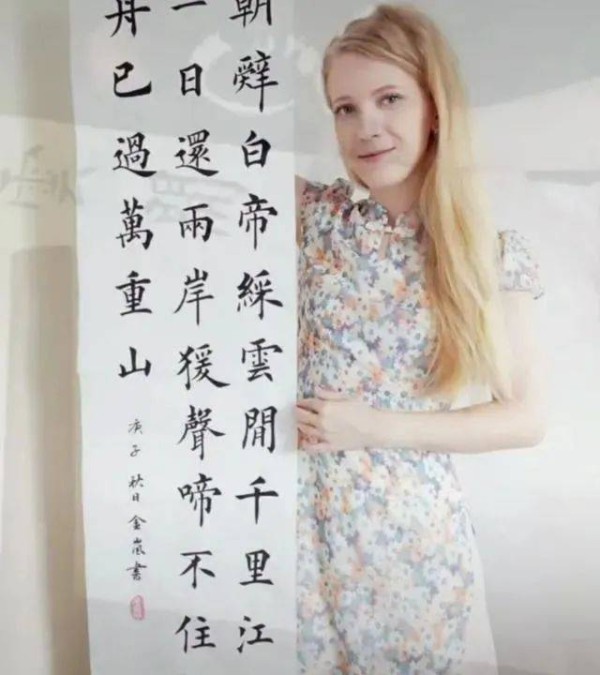 朝辤白帝綵雲閒千里江
一日還兩岸猨聲啼不住
舟已過萬重山
庚子秋日金嵐書